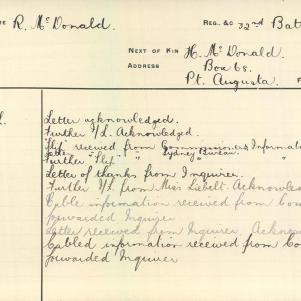 R. McDonald. REG. &C 32nd Bat
NEXT OF KIN H. McDonald.
ADDRESS Box 68.
Pt. Augusta.
Letter acknowledged.
Further I/L. Acknowledged.
"Slip" received from Commissioners Informa
Letter " " Sydney Bureau "
Further "Slip" " " "
Letter of thanks from Inquirer.
Further I/L from Miss Liebelt. Acknowled
Cable information received from Co
forwarded Inquirer
Letter received from Inquirer. Acknow
Cabled information received from Co
forwarded Inquirer